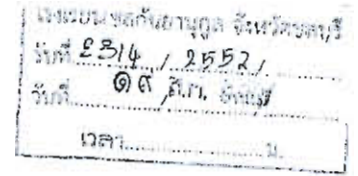 โรงเรียนชลกันยานุกูล จังหวัดชลบุรี
รับที่ 2314 / 2552 /
วันที่ ๑๙ มี.ค.
เวลา น.